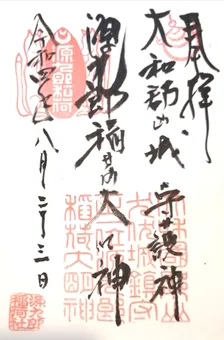 奉拝
大和郡山城 守護神
源九郎稲荷大明神
令和四年八月二十三日
源九郎稲荷
稲荷大明神
源九郎稲荷社